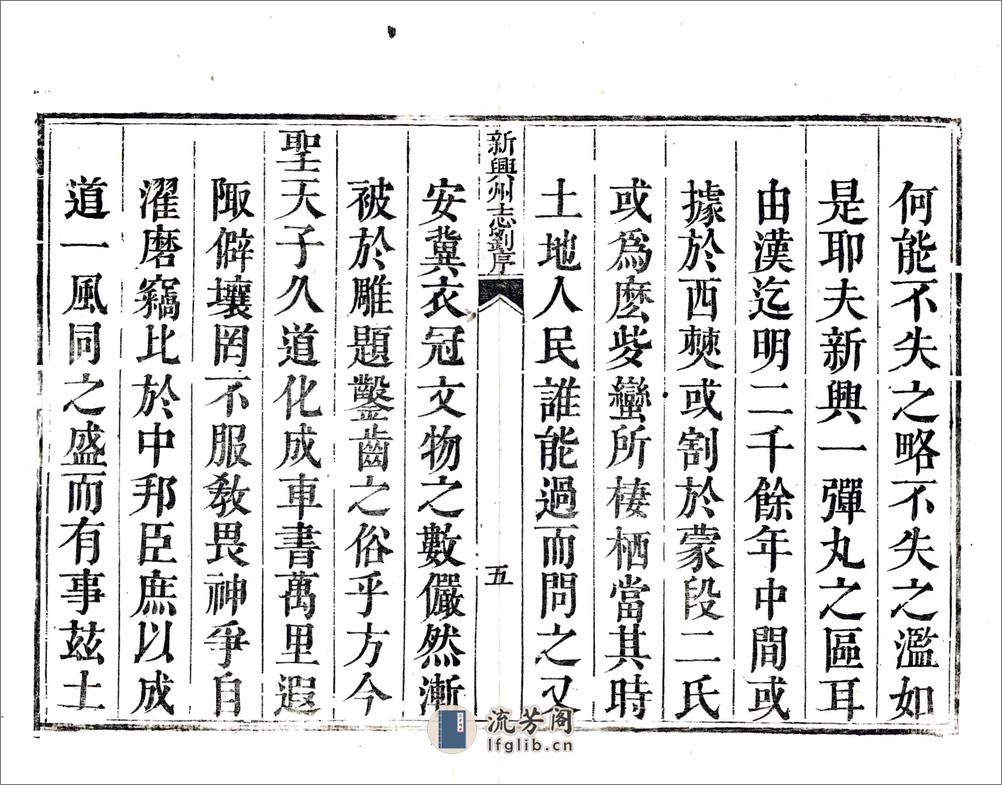 何能不失之略不失之濫如
是耶夫新興一彈丸之區耳
由漢迄明二千餘年中間或
據於西僰或割於蒙段二氏
或爲麽㱔蠻所棲栖當其時
土地人民誰能過而問之又
新興州志劉序
五
安冀衣冠文物之數儼然漸
被於雕題鑿齒之俗乎方今
聖天子久道化成車書萬里遐
陬僻壤罔不服敎畏神爭自
濯磨竊比於中邦臣庶以成
道一風同之盛而有事玆土
流芳阁
lfglib.cn